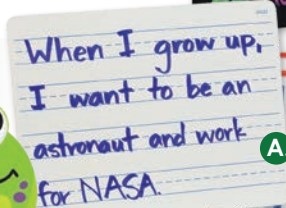 When I grow up,
I want to be an
astronaut and work
for NASA.
A